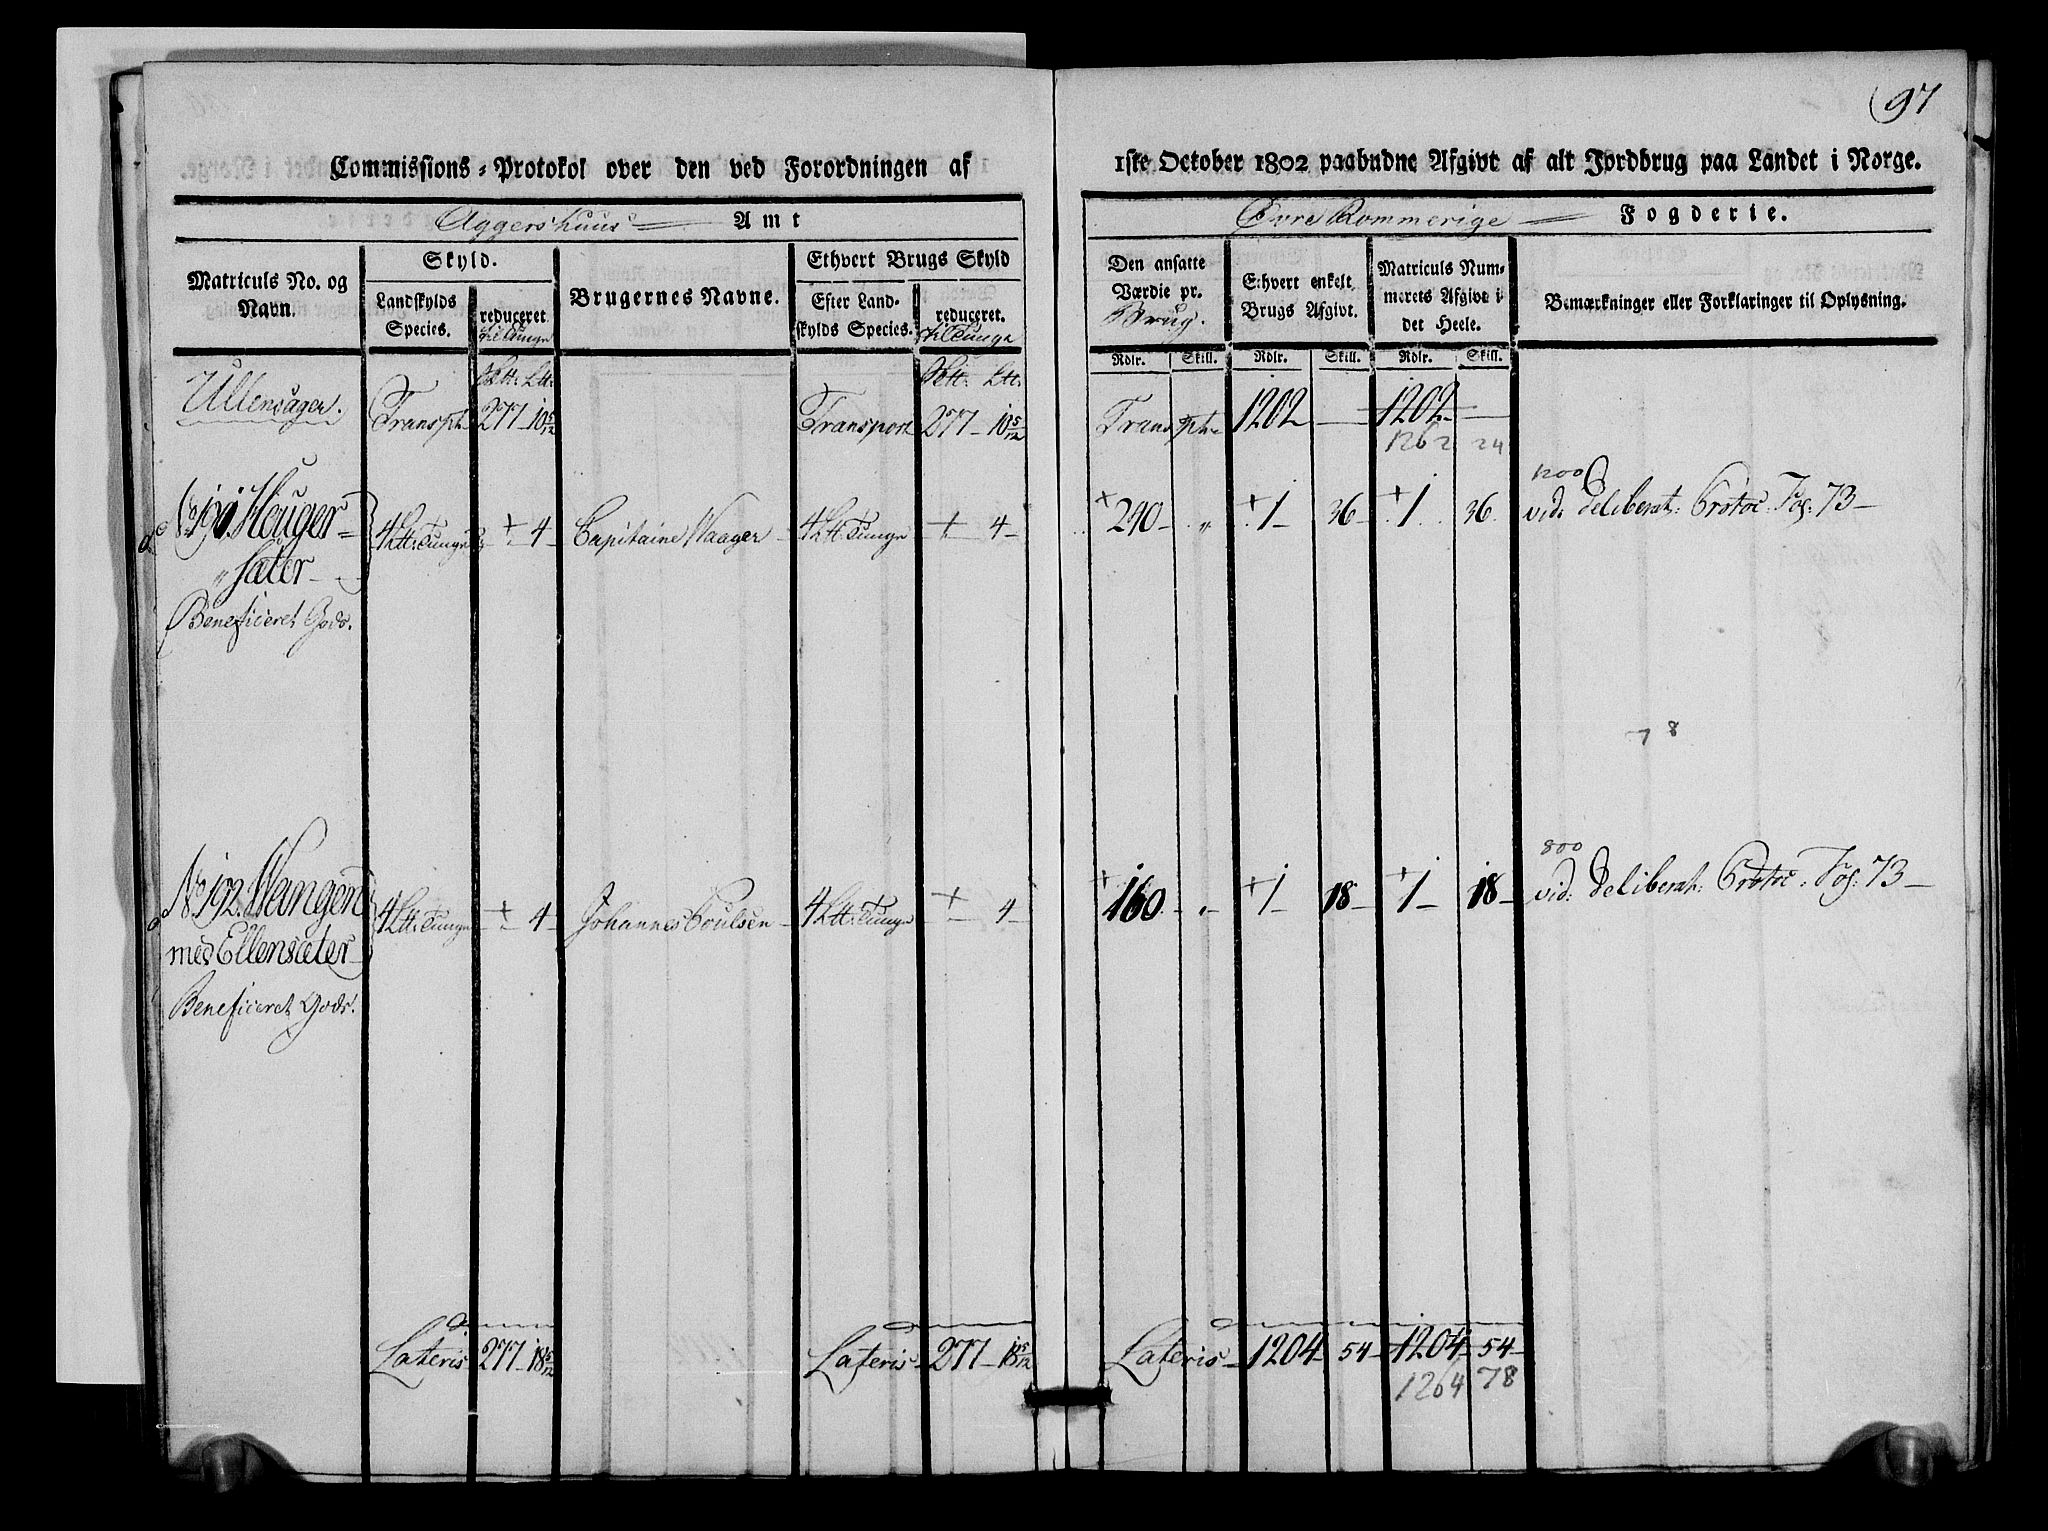 97
Commissions-Protokol over den ved Forordningen af
1ste October 1802 paabudne Afgivt af alt Jordbrug paa Landet i Norge.
Aggershuus Amt
Øvre Rommerige Fogderie.
Matriculs No. og Navn.
Skyld.
Landskylds Species.
reduceret til Tunge
Brugernes Navne.
Ethvert Brugs Skyld
Efter Landskylds Species.
reduceret. til Tunge
Den ansatte Værdie pr. Brug.
Ethvert enkelt Brugs Afgivt.
Matriculs Nummerets Afgivt i det Heele.
Bemærkninger eller Forklaringer til Oplysning.
Rdlr. Skill. Rdlr. Skill. Rdlr. Skill.
Ullensager.
Transpt 277 - 10 5/12
Transport 277 - 10 5/12
Transpt 1202 — 1202 —
1262 24
No 191. Heuger=
„ sæter
Beneficeret Gods.
4 Ltt: Tunge ÷ 4 - Capitaine Waager 4 Ltt: Tunge ÷ 4 -
+ 240 „ + 1 36 + 1 36
1200
vid: deliberat: Protoc: Fog: 73
7 8
No 192. Wangen
med Ellensæter
Beneficeret Gods.
4 Ltt: Tunge ÷ 4 - Johannes Poulsen 4 Ltt: Tunge ÷ 4 -
+ 160 „ + 1 18 + 1 18
800
vid: deliberat: Protoc: Fog: 73
Lateris 277 - 18 5/12
Lateris 277 - 18 5/12
Lateris 1204 54 1204 54
1264 78